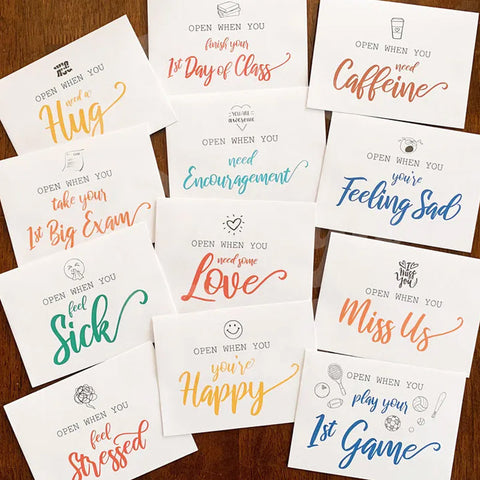 OPEN WHEN YOU
need a
Hug
OPEN WHEN YOU
finish your
1st Day of Class
OPEN WHEN YOU
need
Caffeine
OPEN WHEN YOU
take your
1st Big Exam
YOU ARE
awesome
OPEN WHEN YOU
need
Encouragement
OPEN WHEN
you're
Feeling Sad
OPEN WHEN YOU
feel
Sick
OPEN WHEN YOU
need some
Love
I
Miss
You
OPEN WHEN YOU
Miss Us
OPEN WHEN YOU
feel
Stressed
OPEN WHEN
you're
Happy
OPEN WHEN YOU
play your
1st Game